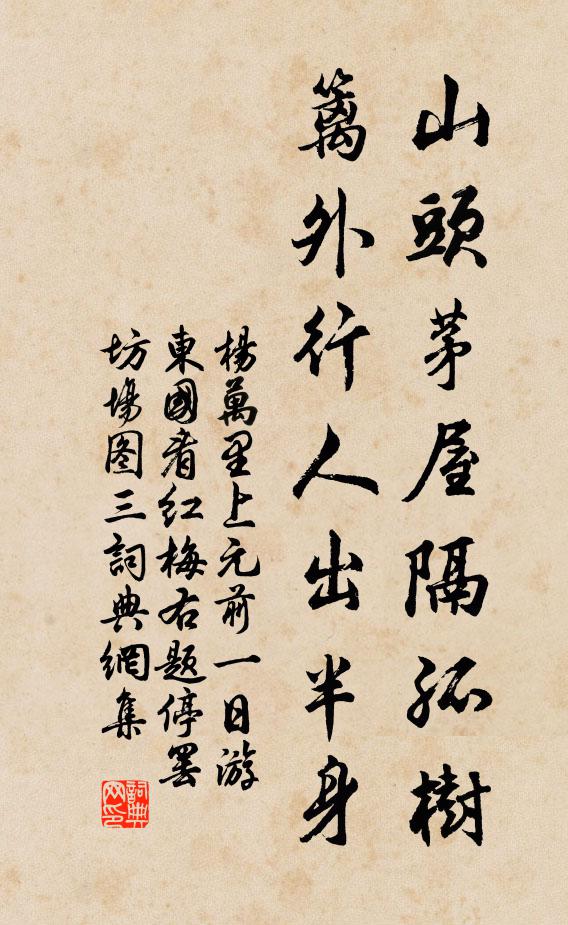 山頭茅屋隔孤樹
籬外行人出半身
楊萬里上元前一日游
東園看紅梅右題停罷
坊場图三詞典網集
詞典網印